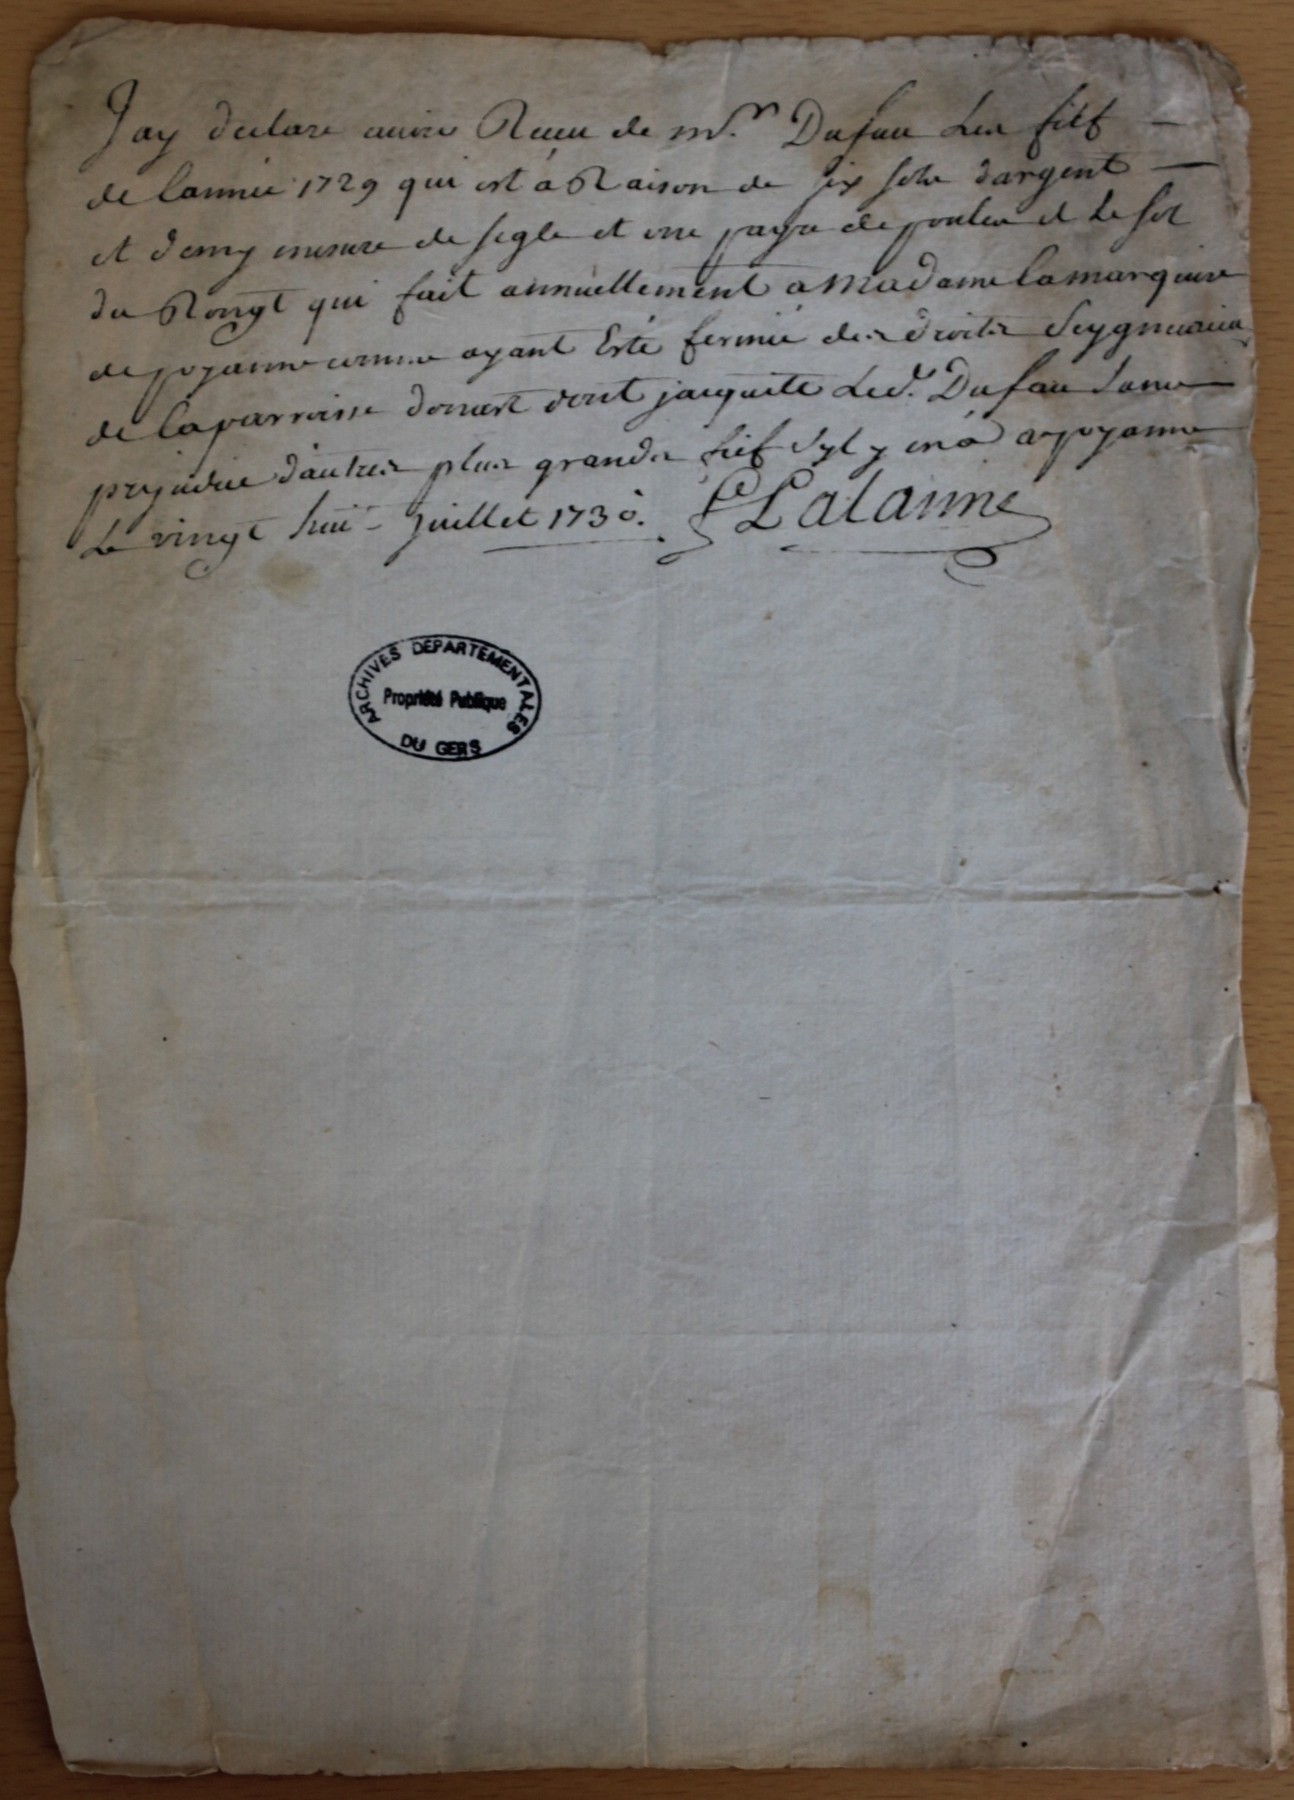 Jay declare avoir Receu de mr. Dufau Les fief
de lannee 1729 qui est a Raison de six sols dargent
et demy mesure de segle et une payre de poules et le sol
du qui fait annuellement a Madame lamarquise
de poyanne comme ayant Esté fermié des droits Seygneuriaux
de laparroisse dont jacquitte Led. Dufau sans
prejudice dautres plus grands fief Syl y en a a poyanne
Le vingt huit juillet 1730. Lalanne
ARCHIVES DEPARTEMENTALES
Propriété Publique
DU GERS